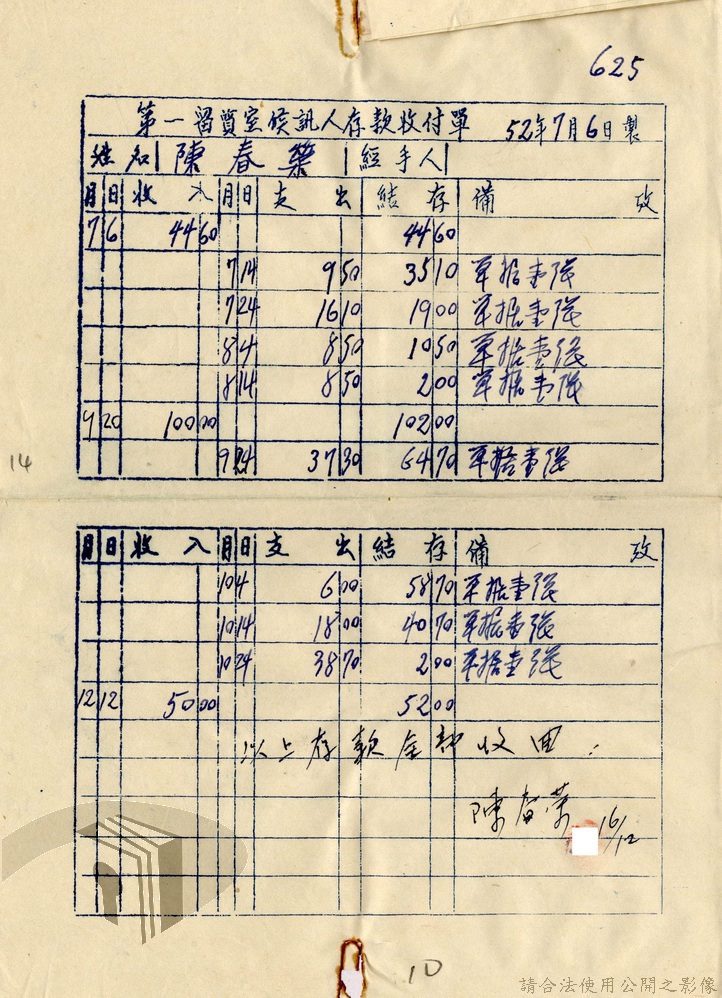 625
第一留質室候訊人存款收付單 52年7月6日製
姓名 陳春榮 經手人
月 日 收入 月 日 支出 結存 備攷
7 6 44 60 44 60
7 14 9 50 35 10 單据壹張
7 24 16 10 19 00 單据壹張
8 4 8 50 10 50 單据壹張
8 14 8 50 2 00 單据壹張
9 20 100 00 102 00
14
9 24 37 30 64 70 單据壹張
月 日 收入 月 日 支出 結存 備攷
10 4 6 00 58 70 單据壹張
10 14 18 00 40 70 單据壹張
10 24 38 70 2 00 單据壹張
12 12 50 00 52 00
以上存款全部收回.
陳春榮 16/12
10
請合法使用公開之影像